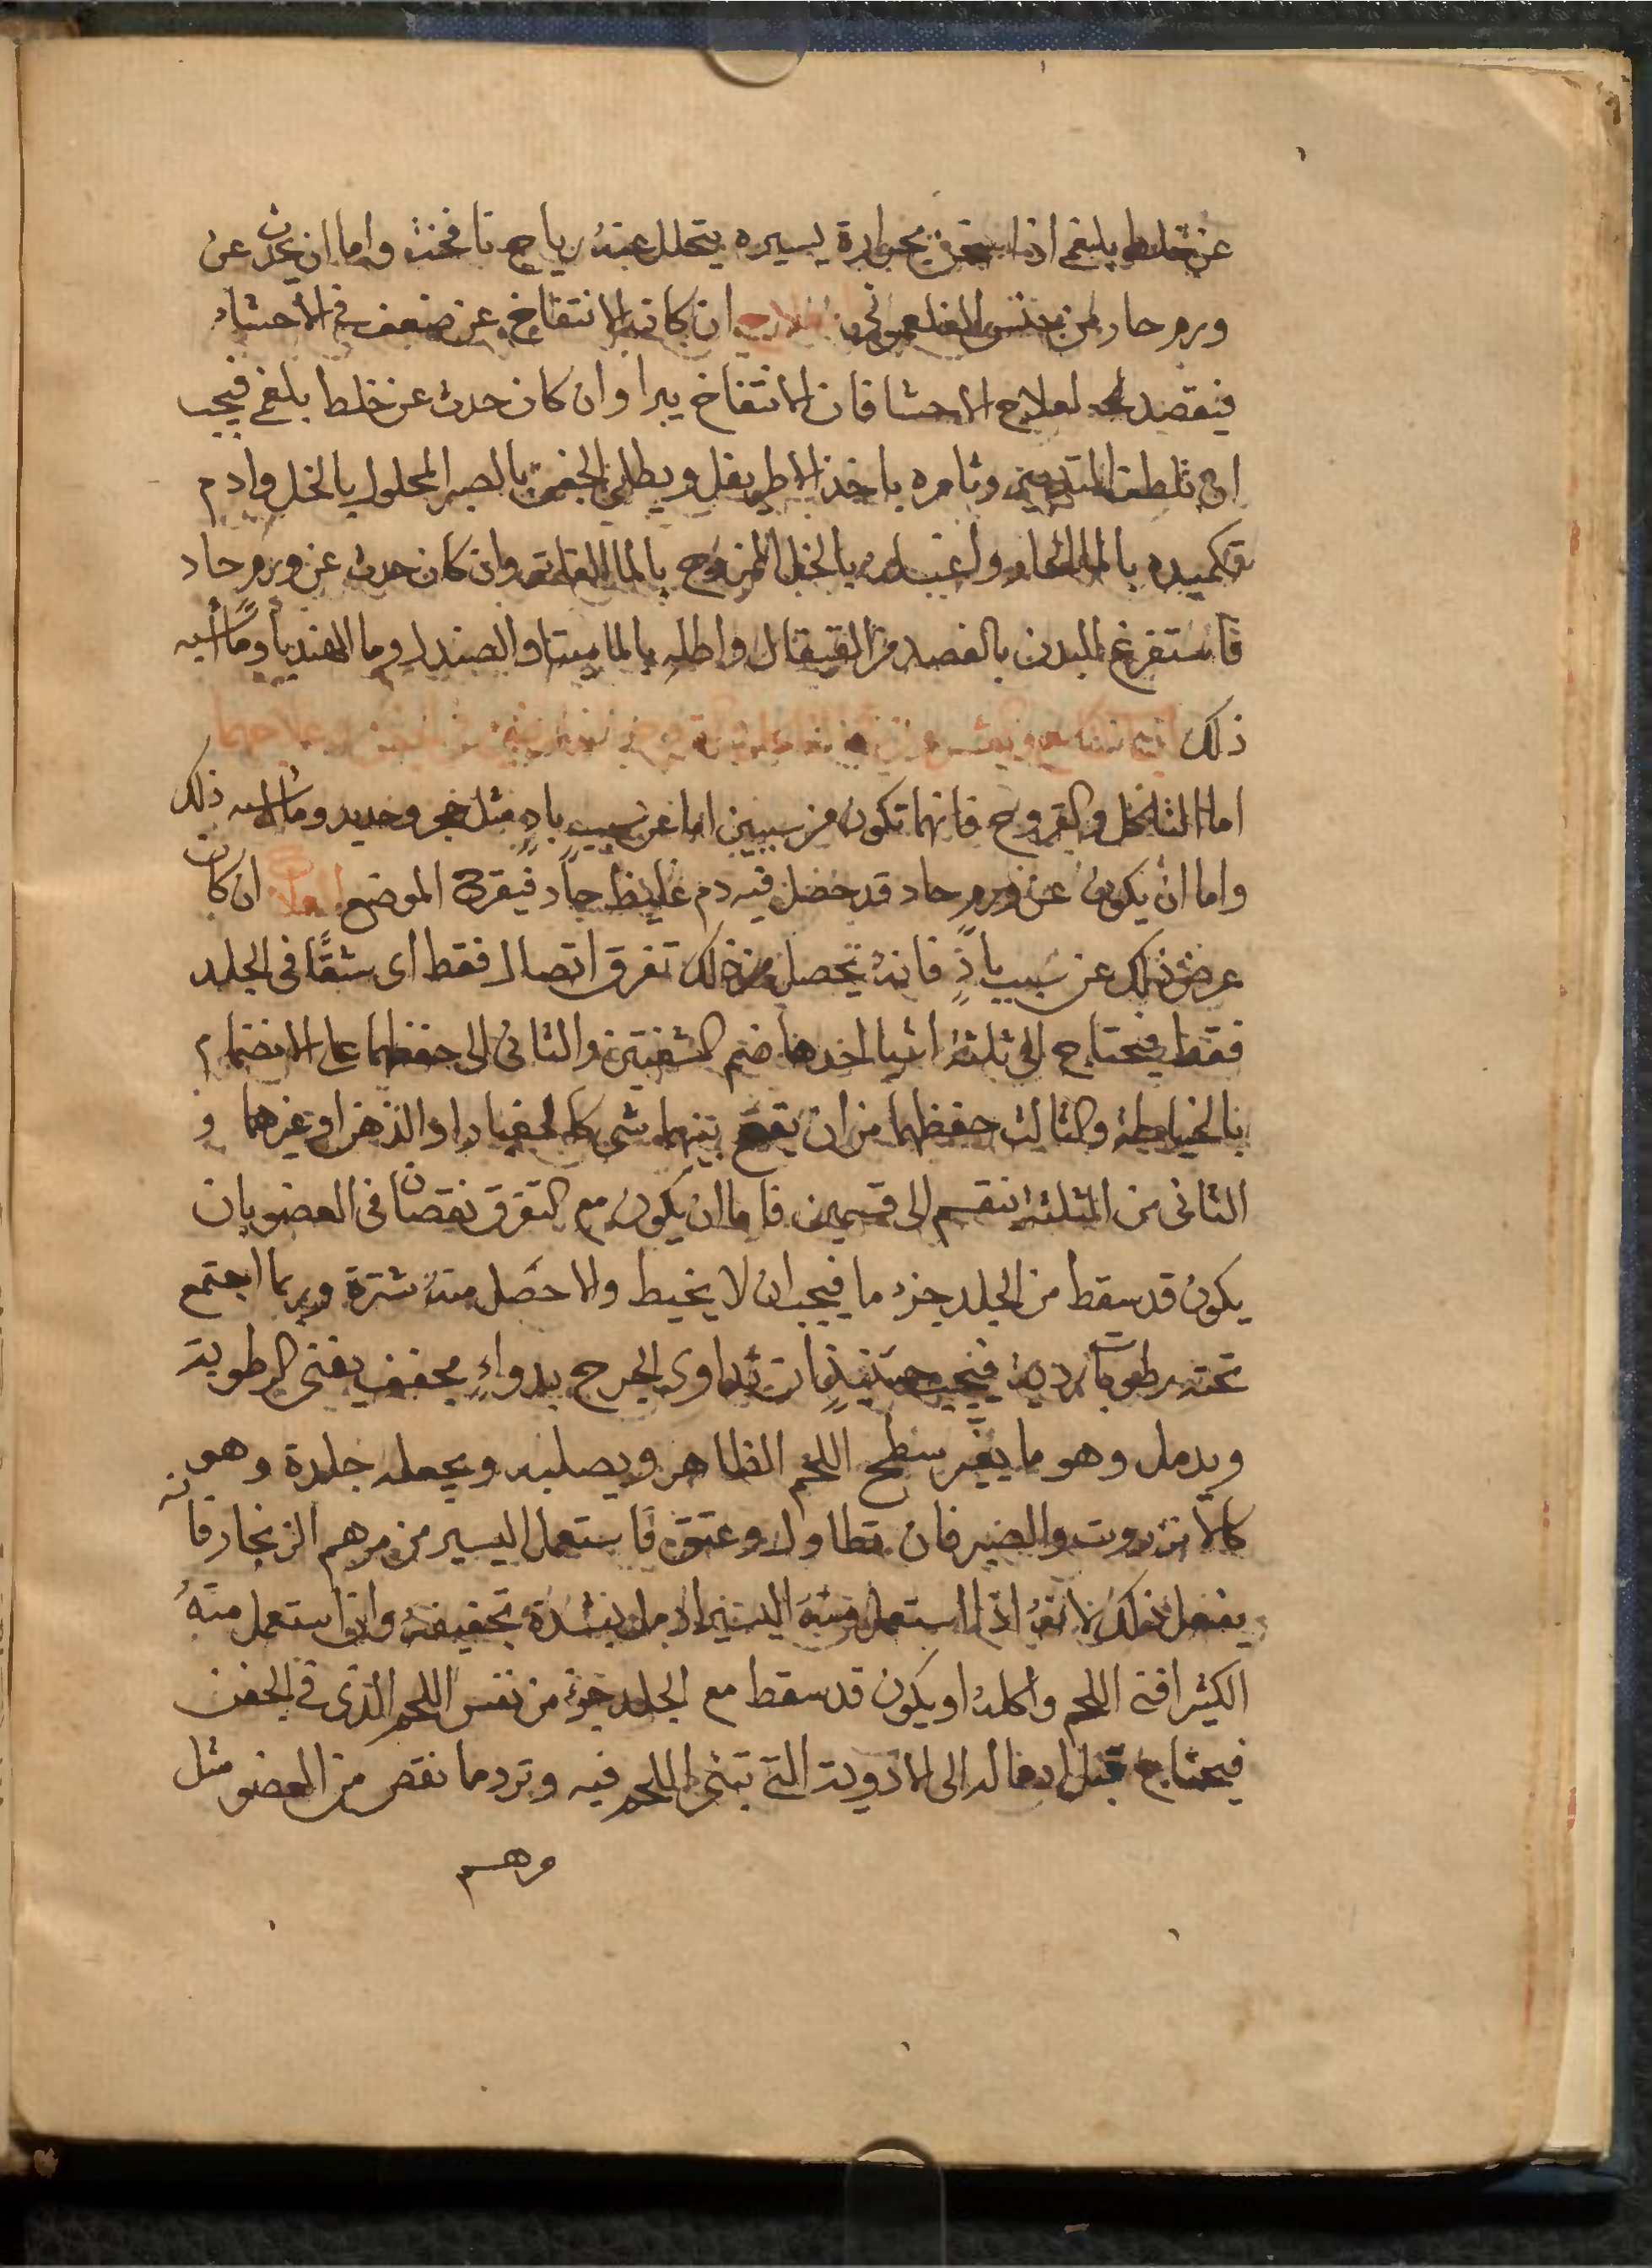 عن خلط بلغمي اذا سخن بحرارة يسيره يتحلل عنه رياح نافخه واما ان يحدث عن
ورم حار من جنس الفلغموني العلاج ان كان الانتفاخ عن ضعف في الاحشاء
فيقصد لعلاج الاحشا فان الانتفاخ يبرا وان كان حدث عن خلط بلغمي فيجب
ان تلطف التدبير وتامره باخذ الاطريفل ويطلي الجفن بالصبر المحلول بالخل وادم
تكميده بالماء الحار واغسله بالخل الممزوج بالماء الفاتر وان كان حدث عن ورم حاد
فاستفرغ البدن بالفصد من القيفال واطله بالماميثا والصندل وما الهندبا وما اشبه
ذلك
اما التاكل والقروح فانها تكون من سببين اما عن سبب بادٍ مثل حجر وحديد وما اشبه ذلك
واما ان يكون عن ورم حاد قد حصل فيه دم غليظ حاد فيقرح الموضع العلاج ان كان
عرض ذلك عن سبب بادٍ فانه يحصل من ذلك تفرق اتصال فقط اى شقًا في الجلد
فقط فيحتاج الى ثلثه اشيا احدها ضم الشفتين والثانى الى حفظهما على الانضمام
بالخياطه والثالث حفظهما من ان يقع بينهما شى كالغبار او الدهن او غيرهما و
الثاني من الثلثه ينقسم الى قسمين فاما ان يكون مع التفرق نقصان في العضو بان
يكون قد سقط من الجلد جزء ما فيجب ان لا يخيط والا حصل منه شترة وربما اجتمع
تحته رطوبات ردية فيجب حينئذٍ ان تداوى الجرح بدواءٍ مجفف يفنى الرطوبة
ويدمل وهو ما يغير سطح اللحم الظاهر ويصلبه ويجعله جلدة وهو
كالانزروت والصبر فان تطاول وعتق فاستعمل اليسير من مرهم الزنجار فانه
يفعل ذلك لانه اذا استعمل منه اليسير ادمل بشدة تجفيفه وان استعمل منه
الكثير افنى اللحم واكله او يكون قد سقط مع الجلد جزء من نفس اللحم الذى فى الجفن
فيحتاج قبل ادماله الى الادوية التى تبنى اللحم فيه وترد ما نقص من العضو مثل
مرهم